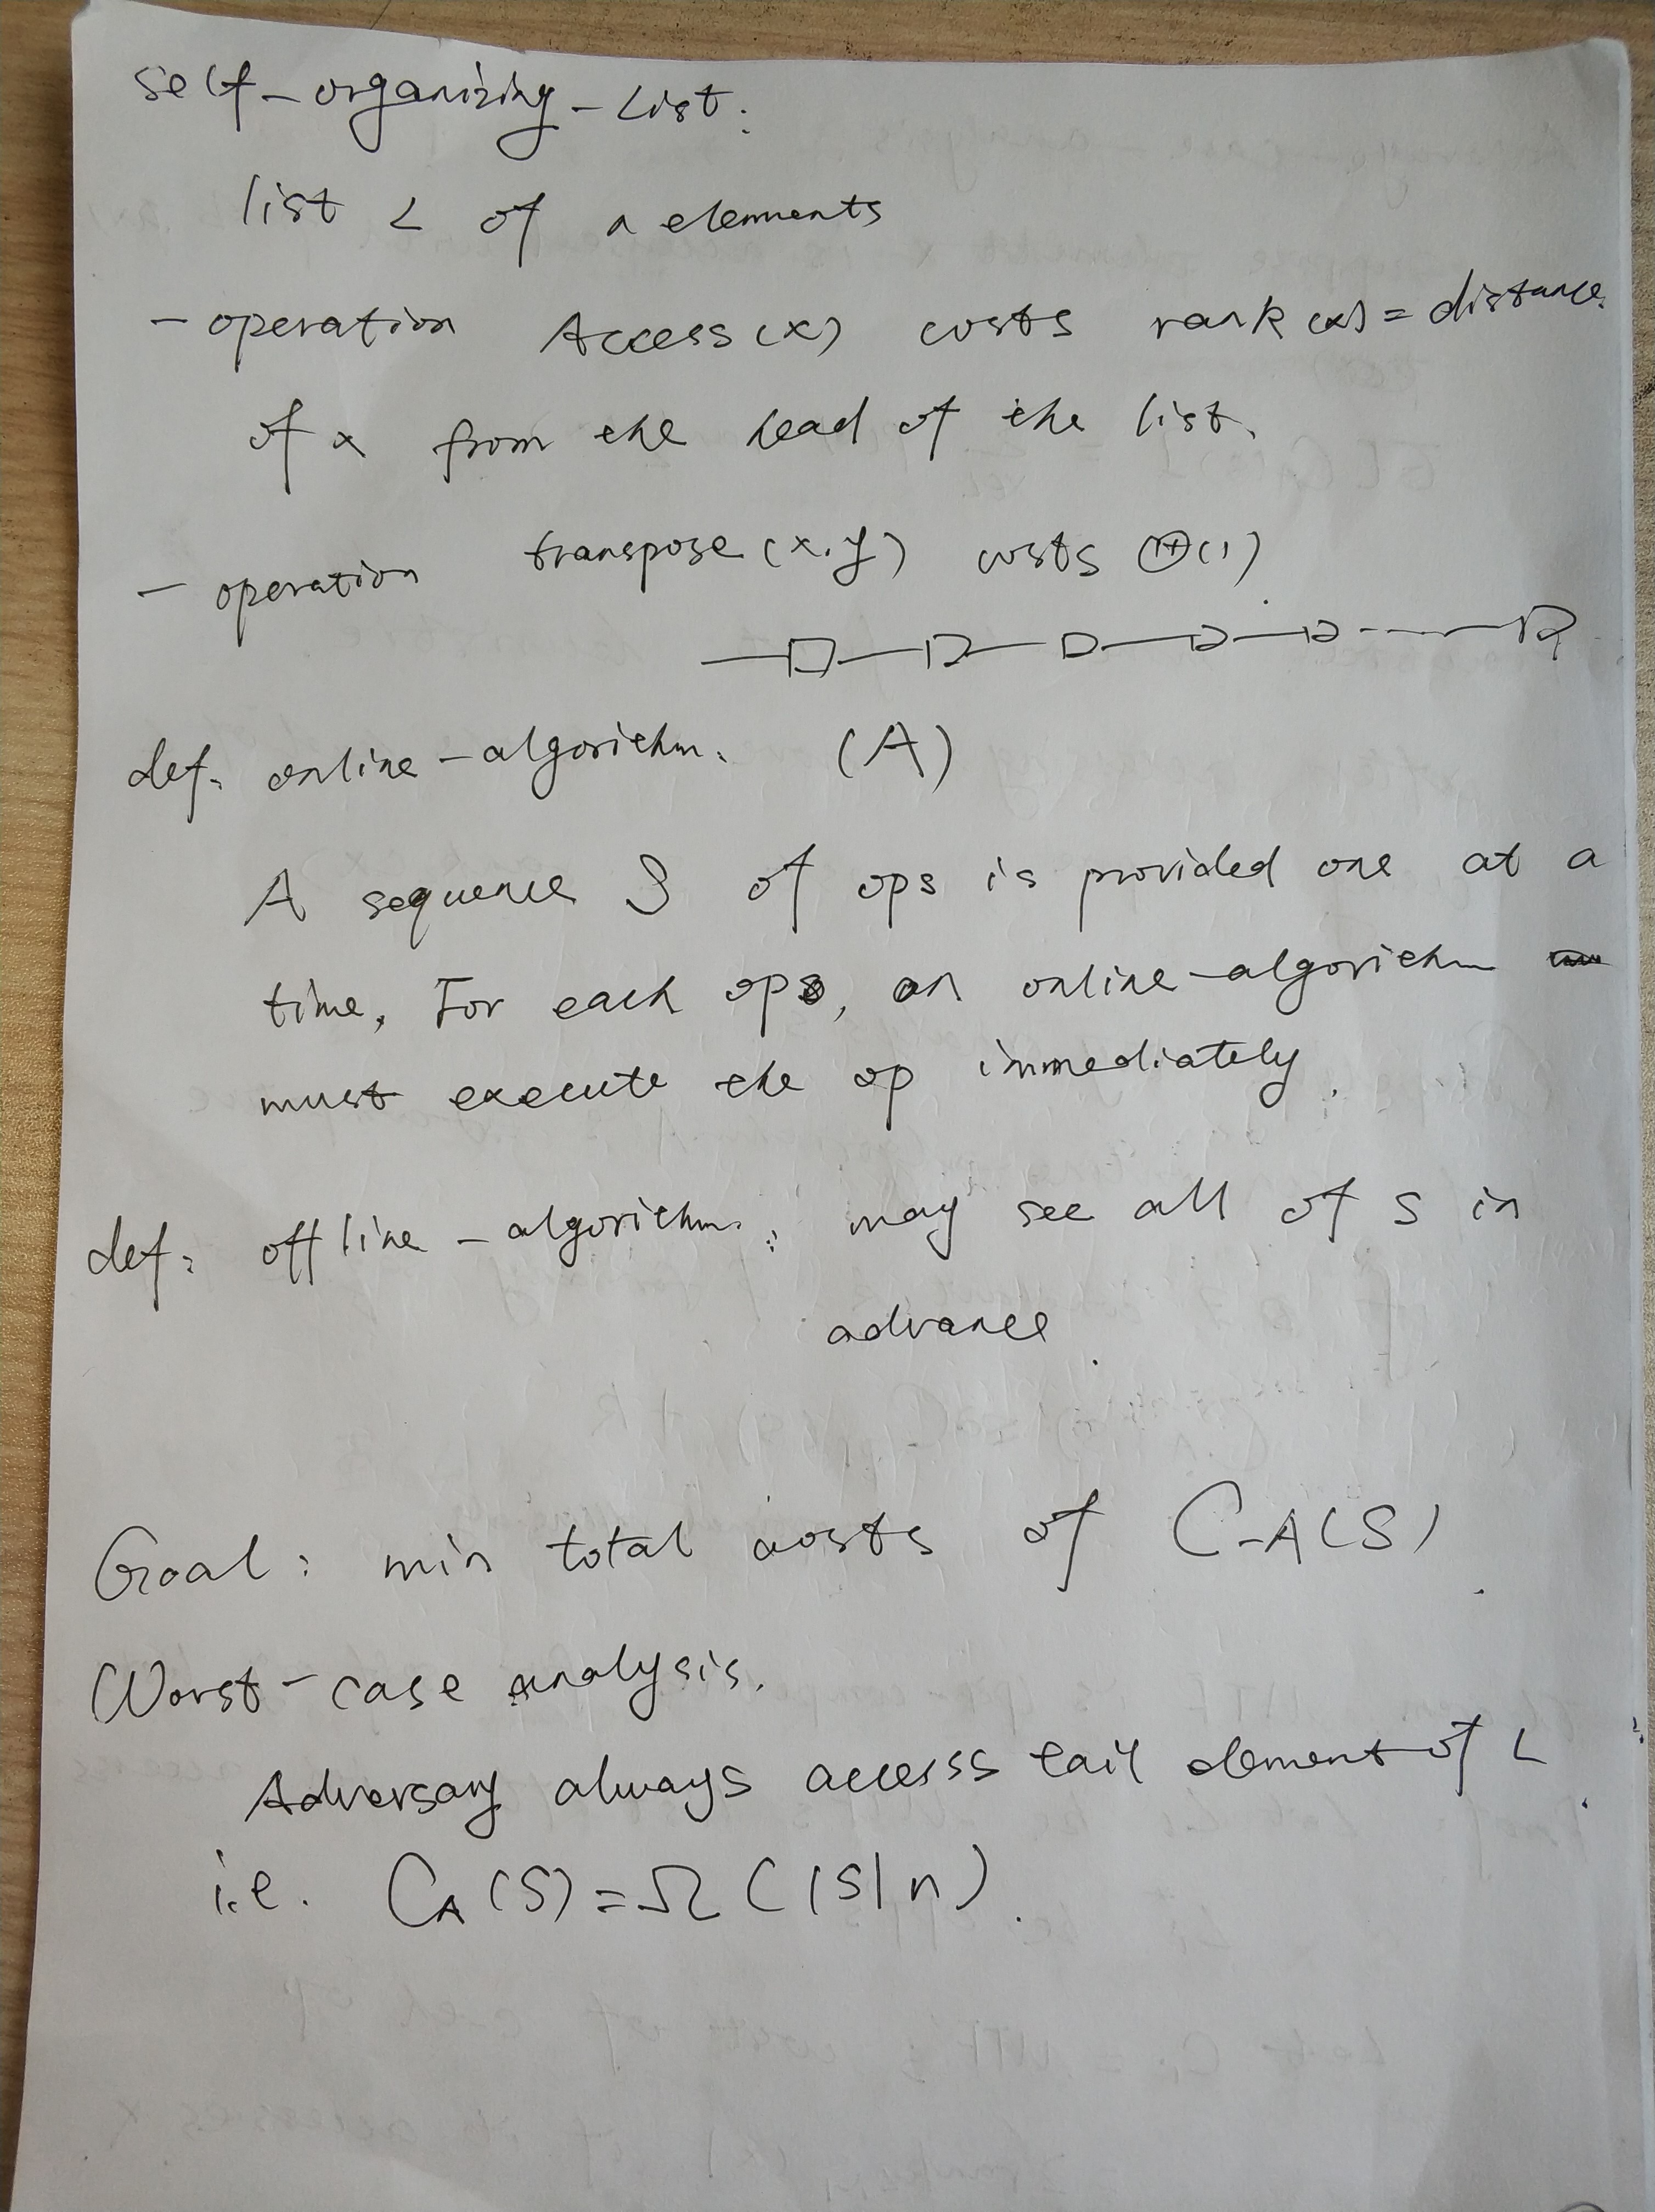 self-organizing-List:
list L of n elements
- operation Access(x) costs rank(x) = distance
of x from the head of the list.
- operation transpose(x.y) costs Θ(1)
def: online-algorithm. (A)
A sequence S of ops is provided one at a
time. For each op, an online-algorithm
must execute the op immediately.
def: offline-algorithm: may see all of S in
advance.
Goal: min total costs of C-A(S).
Worst-case analysis.
Adversary always accesss tail element of L.
i.e. C_A(S)=Ω(|S|n).